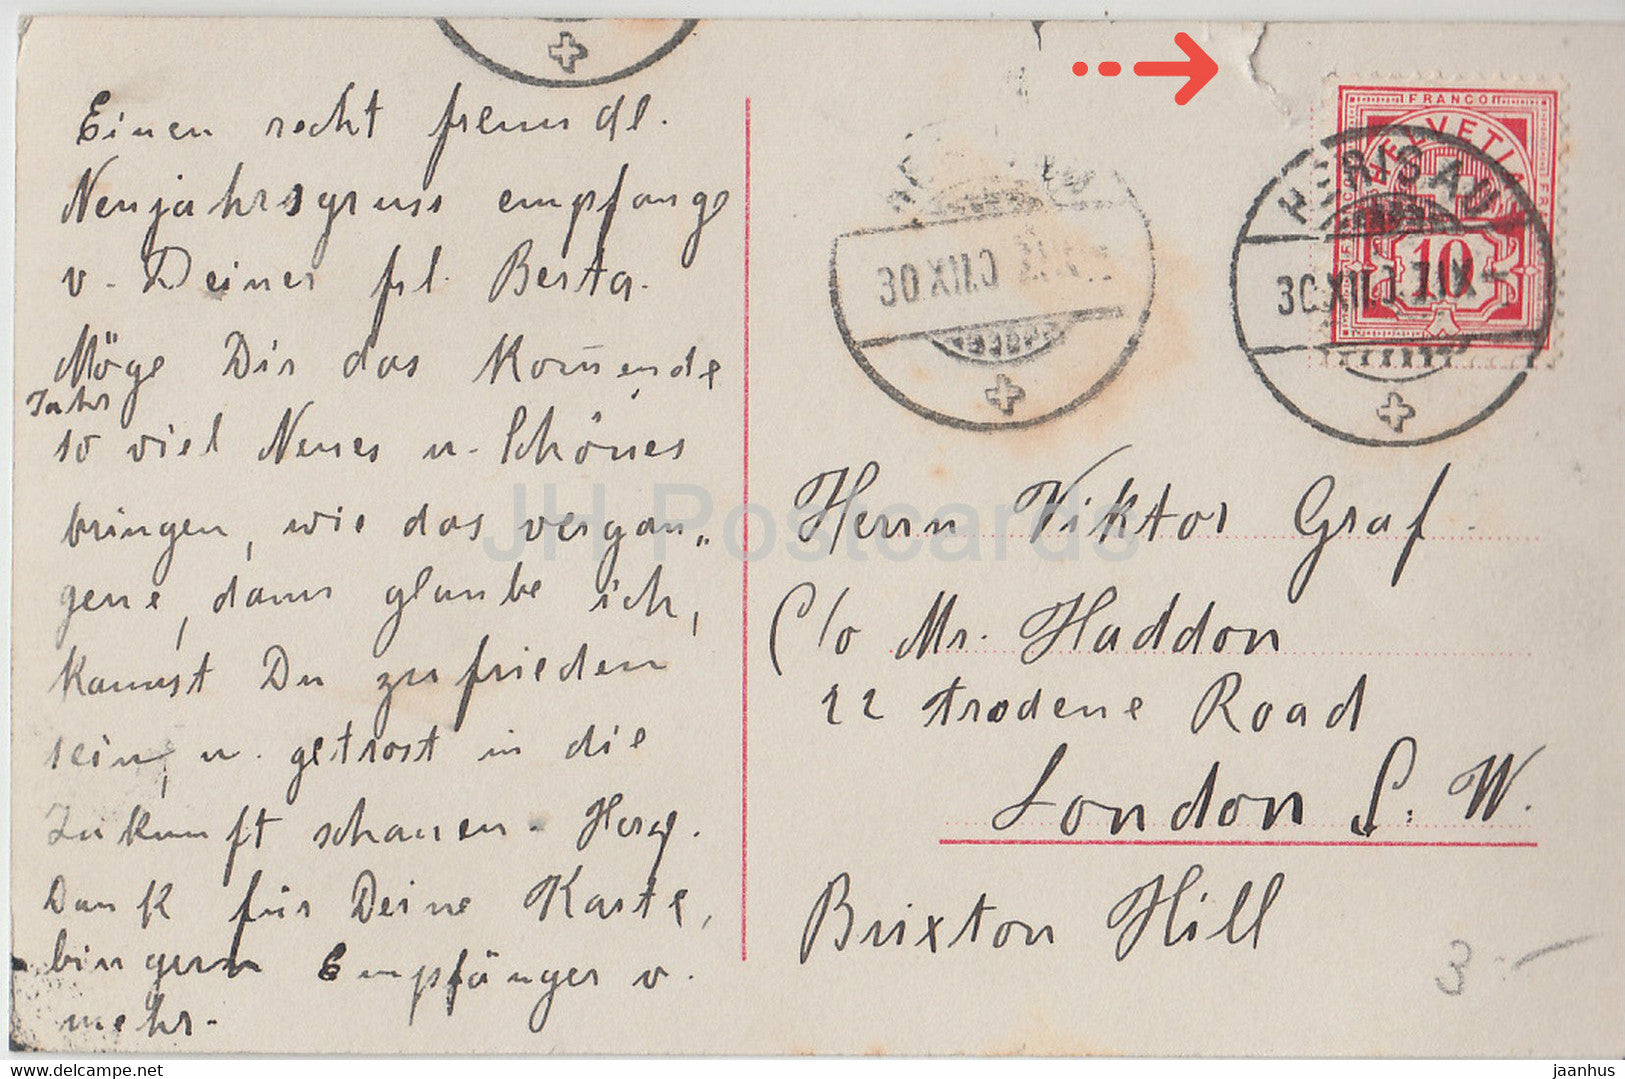 Einen recht freundl.
Neujahrsgruss empfange
v. Deiner frl. Berta.
Möge Dir das Kom̅ende
Jahr
so viel Neues u. Schönes
bringen, wie das vergan„
gene, dann glaube ich,
kannst Du zufrieden
sein, u. getrost in die
Zukunft schauen. Herzl.
Dank für Deine Karte,
bin gern Empfänger v.
mehr.
FRANCO
HELVETIA
10
HERISAU
30 XII
30 XII 0
Herrn Viktor Graf.
C/o Mr. Haddon
22 Trodene Road
London S. W.
Brixton Hill
3.-
JH Postcards
jaanhus